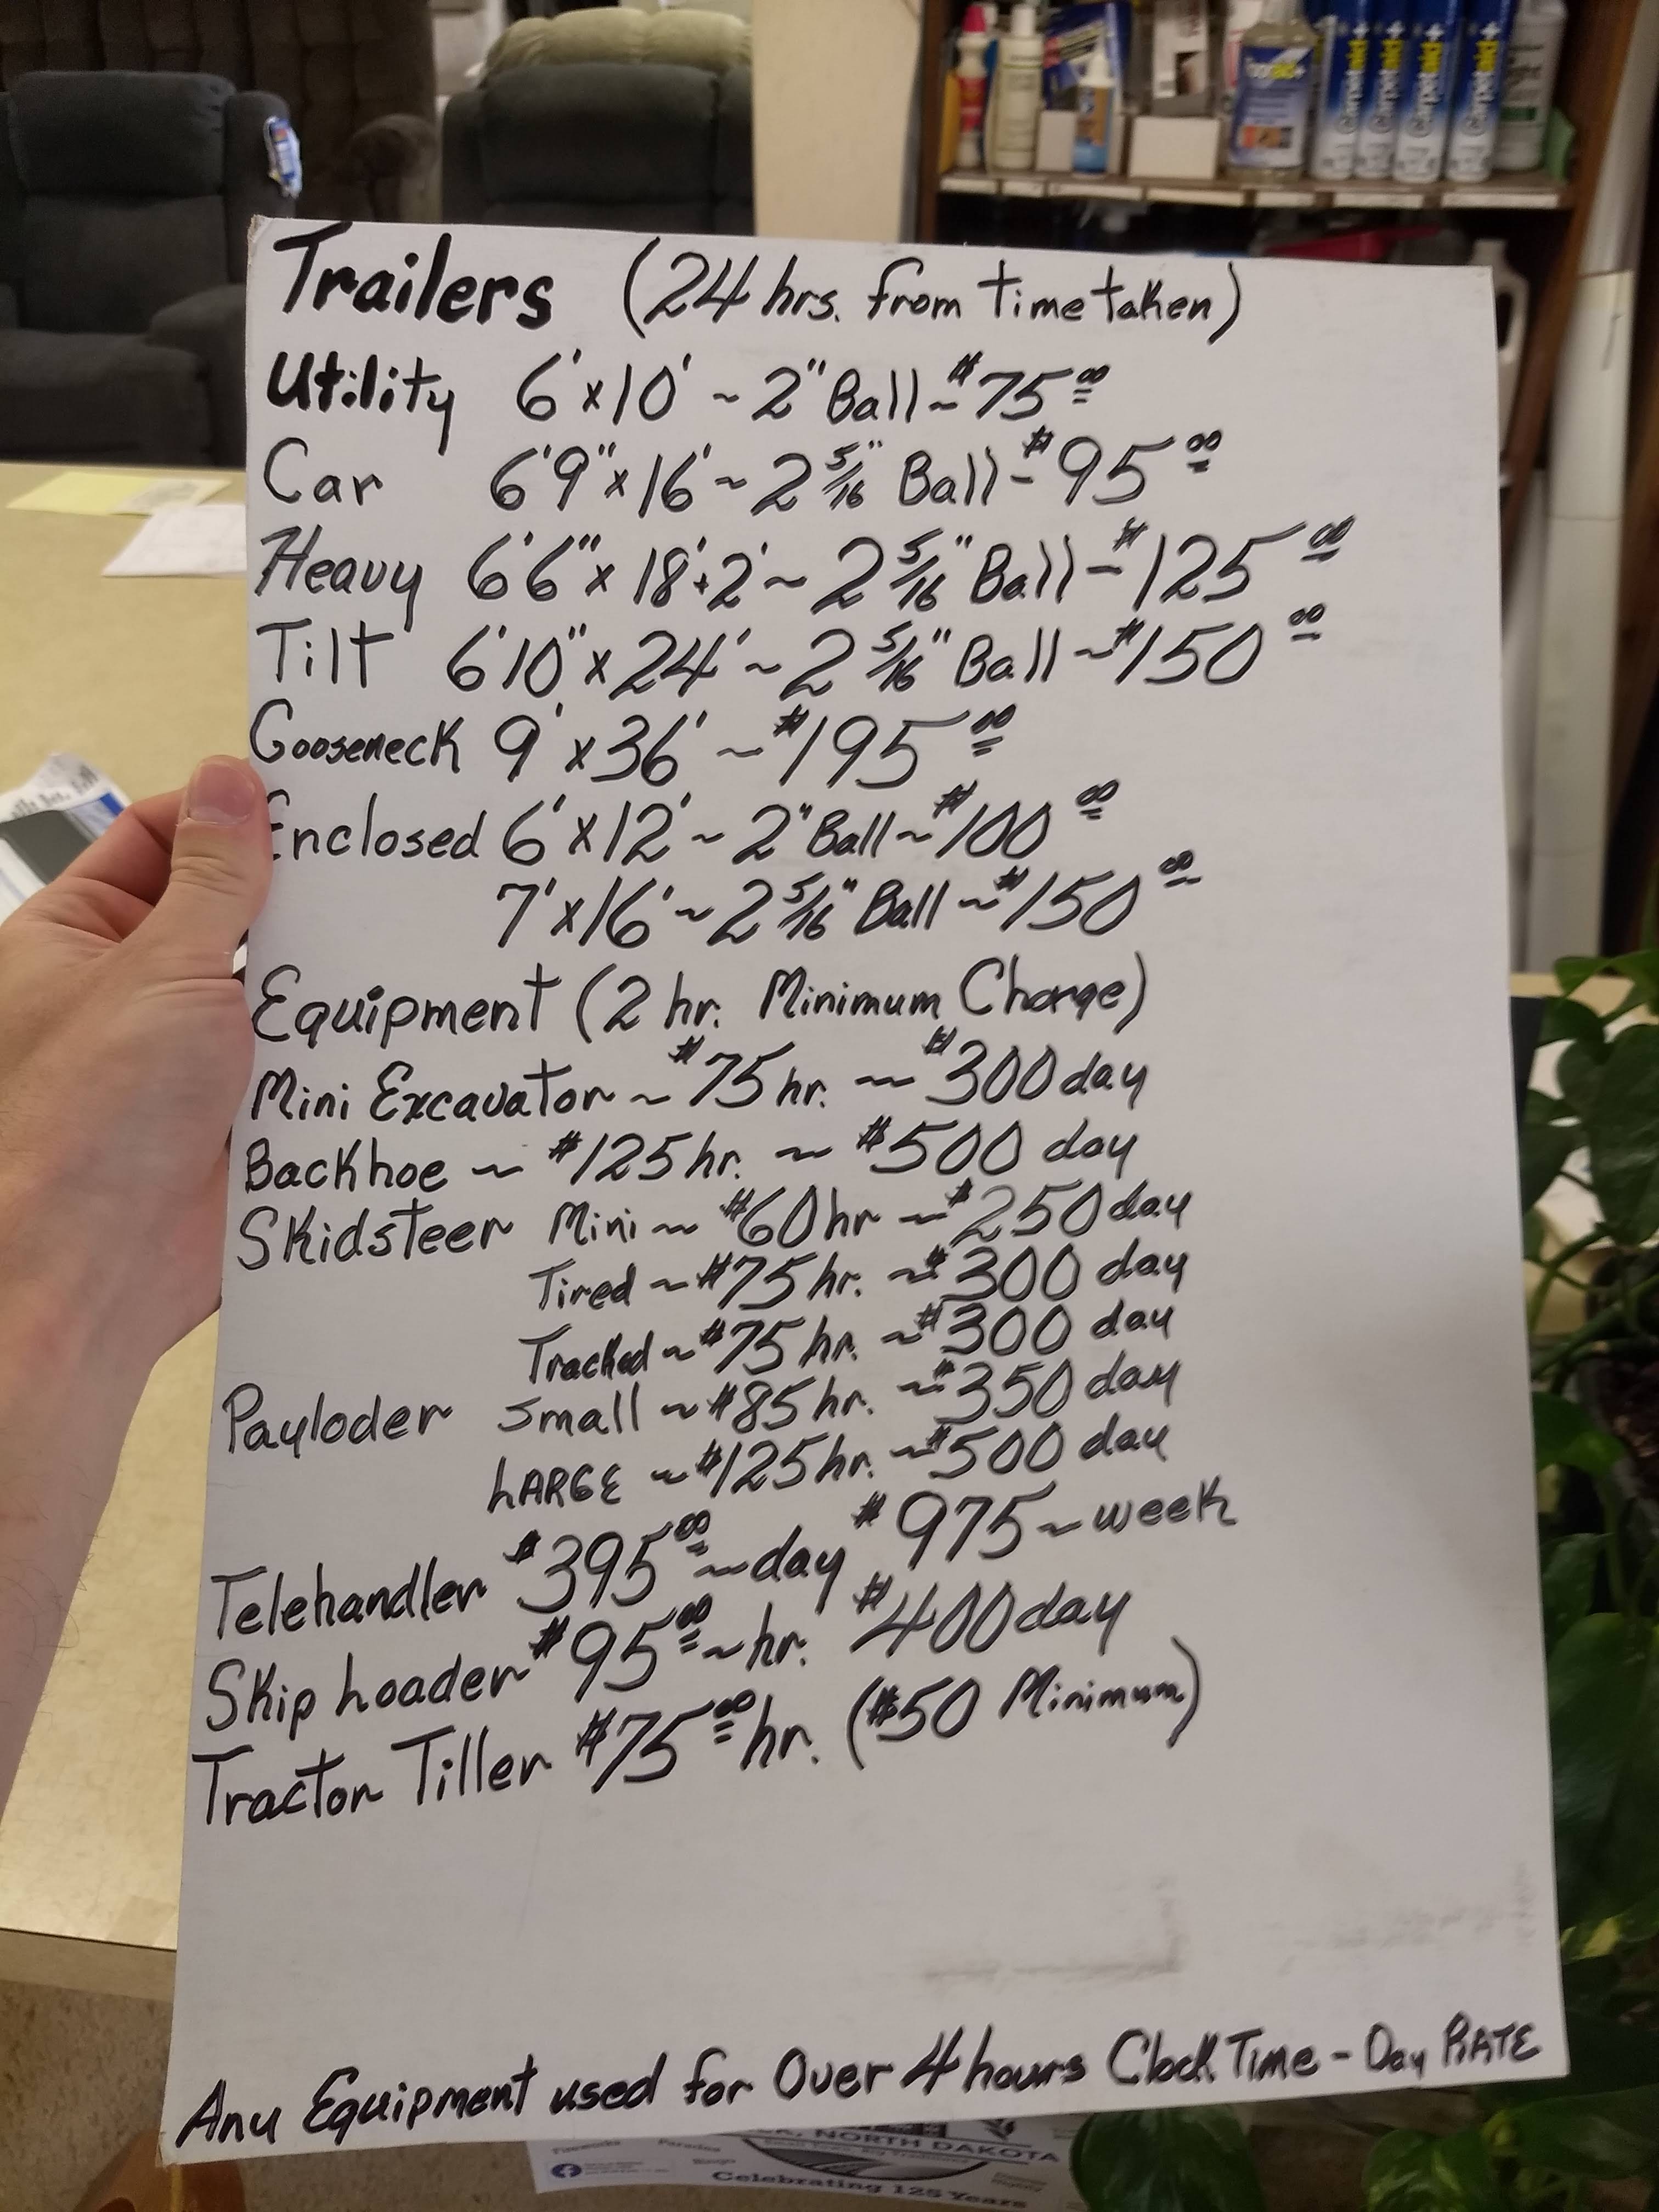 Trailers (24 hrs. from time taken)
Utility 6'x10' ~ 2" Ball ~ $75.00
Car 6'9"x16' ~ 2 5/16" Ball - $95.00
Heavy 6'6"x18'+2' ~ 2 5/16" Ball - $125.00
Tilt 6'10"x24' ~ 2 5/16" Ball ~ $150.00
Gooseneck 9'x36' ~ $195.00
Enclosed 6'x12' ~ 2" Ball ~ $100.00
7'x16' ~ 2 5/16" Ball ~ $150.00
Equipment (2 hr. Minimum Charge)
Mini Excavator ~ $75 hr. ~ $300 day
Backhoe ~ $125 hr. ~ $500 day
Skidsteer Mini ~ $60 hr ~ $250 day
Tired ~ $75 hr. ~ $300 day
Tracked ~ $75 hr. ~ $300 day
Payloder Small ~ $85 hr. ~ $350 day
LARGE ~ $125 hr. ~ $500 day
Telehandler $395.00 ~ day $975 ~ week
Skip Loader $95.00 ~ hr. $400 day
Tractor Tiller $75.00 hr. ($50 Minimum)
Any Equipment used for Over 4 hours Clock Time - Day RATE
NORTH DAKOTA
Celebrating 125 Years